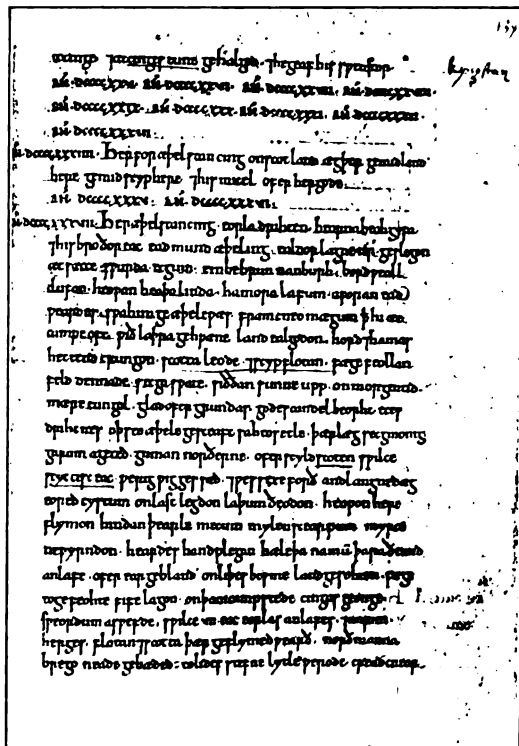 ⁊æt cinges tune gehalgod · ⁊he geaf his sƿeostor
AN̄ · dccccxxv · AN̄ · dccccxxvi · AN̄ · dccccxxvii · AN̄ · dccccxxviii ·
AN̄ · dccccxxix · AN̄ · dccccxxx · AN̄ · dccccxxxi · AN̄ · dccccxxxii ·
AN̄ · dccccxxxiii ·
AN̄ · dccccxxxiiii · Her for æþelstan cing on scotland ægþer ge mid land
here ge mid scyphere ⁊his micel ofer hergode ·
AN̄ · dccccxxxv · AN̄ · dccccxxxvi ·
AN̄ · dccccxxxvii · Her æþelstan cing · eorla drihten · beorna beahgifa
⁊his broðor eac · eadmund æþeling · ealdor lagne tir · geslogon
æt sæcce · sƿurda ecgum · embe brunnanburh · bordƿeall
clufan · heoƿan heaþolinda · hamora lafum · aforan ead
ƿeardes · sƿa him geæþele ƿæs · fram cneomagum þ hi æt
campe oft · ƿið laþra gehƿæne · land ealgodon · hord ⁊hamas
hettend crungon · scotta leode · ⁊scypflotan · fæge feollan
feld dennade · secga sƿate · siððan sunne upp · on morgentid ·
mære tungol · glad ofer grundas · godes candel beorht · eces
drihtnes · oþ seo æþele gesceaft sah to setle · þær læg secg monig
garum ageted · guman norðerne · ofer scyld scoten sƿilce
scyttisc eac · ƿerig ƿigges sæd · ⁊ƿessexe forð andlangne dæg
eored cystum on last legdon laþum ðeodon · heoƿon here
flymon hindan þearle mecum mylenscearpum myrce
ne ƿyrndon · heardes handplegan hæleþa nanū þara ðe mid
anlafe · ofer eargebland on liþes bosme land gesohtan · fæge
to gefeohte fife lagon · on þam campstede cingas geonge
sƿeordum asƿefde · sƿilce vii eac eorlas anlafes · unrim
herges · flotan ⁊scotta þær geflymed ƿearð · norðmanna
brego neade gebæded · to lides stefne lytle ƿerode cread cnear